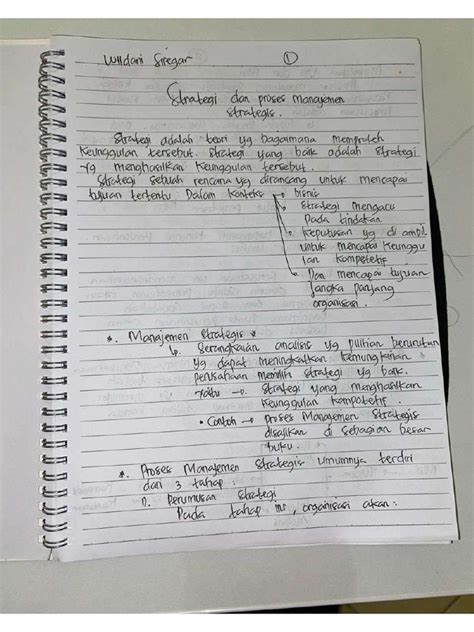 Wildani Siregar
1
Strategi dan proses manajemen
strategis.
Strategi adalah teori yg bagaimana memproleh
Keunggulan tersebut. Strategi yang baik adalah Strategi
yg menghasilkan Keunggulan tersebut.
Strategi sebuah rencana yg dirancang untuk mencapai
tujuan tertentu. Dalam konteks bisnis
Strategi mengacu
pada tindakan
Keputusan yg di ambil
untuk mencapai Keunggu
lan kompetetif
Dan mencapai tujuan
Jangka panjang
organisasi.
*. Manajemen Strategis *
Serangkaian analisis yg pilihan berurutan
yg dapat meningkatkan kemungkinan
perusahaan memilih strategi yg baik.
Yaitu → Strategi yang menghasilkan
Keunggulan kompetetif.
• Contoh → Proses Manajemen Strategis
disajikan di sebagian besar
buku.
*. Proses Manajemen Strategis umumnya terdiri
dari 3 tahap:
1). Perumusan Strategi
Pada tahap ini, organisasi akan: